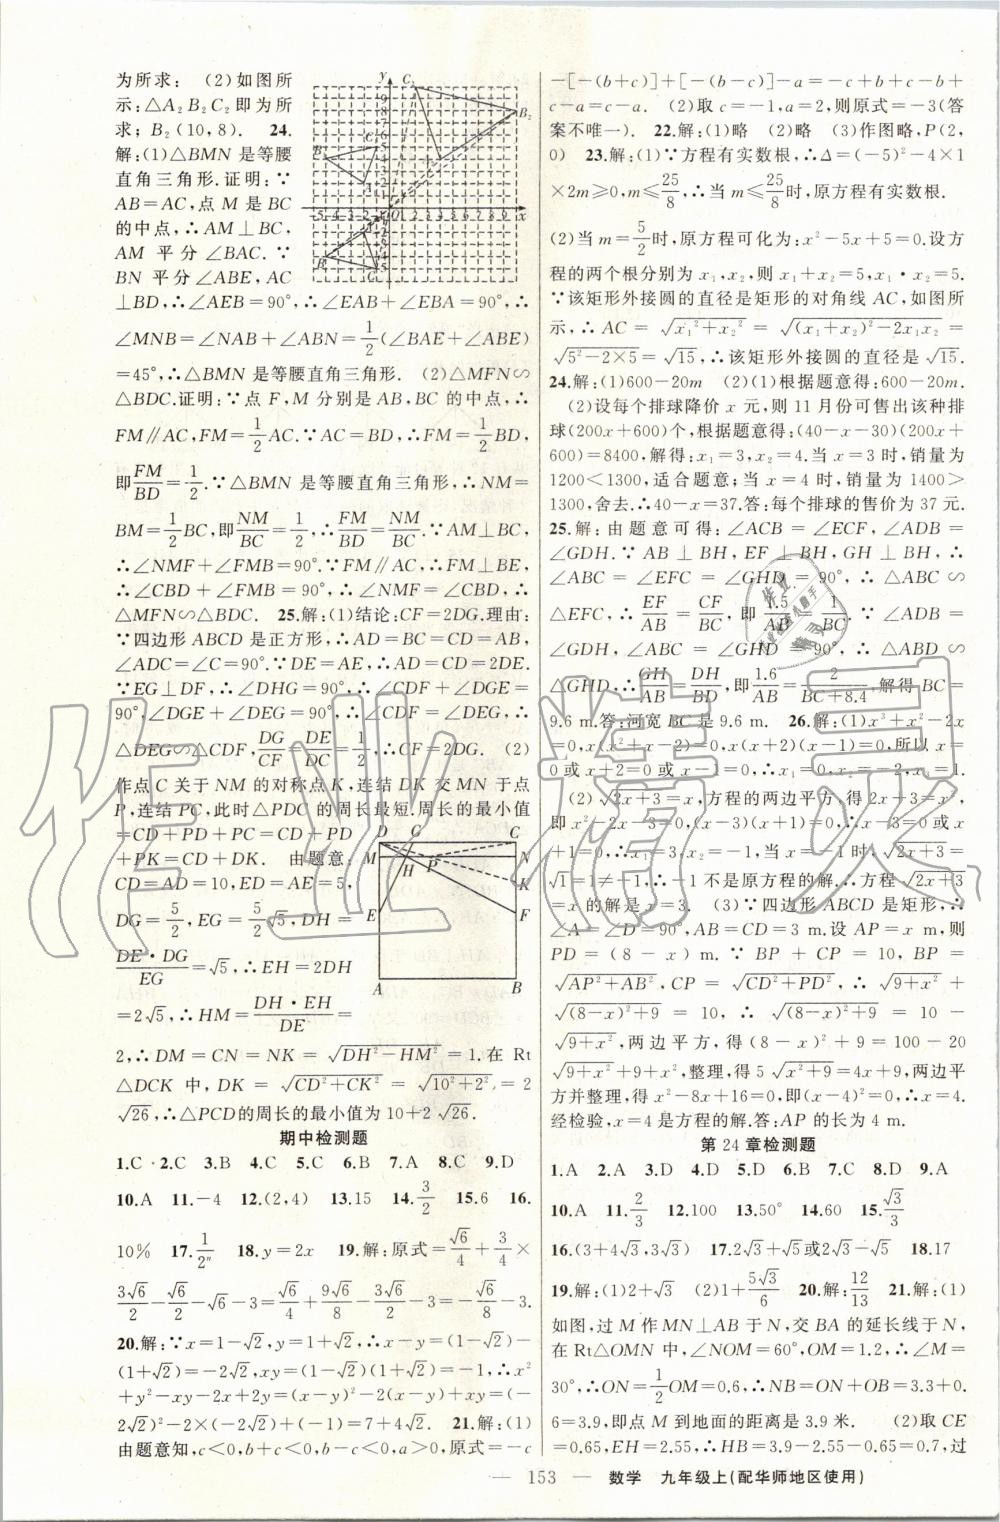 为所求; (2)如图所
示:△A₂B₂C₂即为所
求; B₂(10,8). 24.
解:(1)△BMN是等腰
直角三角形.证明:∵
AB=AC,点M是BC
的中点,∴AM⊥BC,
AM平分∠BAC.∵
BN平分∠ABE,AC
⊥BD,∴∠AEB=90°,∴∠EAB+∠EBA=90°,∴
∠MNB=∠NAB+∠ABN=1/2(∠BAE+∠ABE)
=45°,∴△BMN是等腰直角三角形. (2)△MFN∽
△BDC.证明:∵点F,M分别是AB,BC的中点,∴
FM∥AC,FM=1/2AC.∵AC=BD,∴FM=1/2BD,
即FM/BD=1/2.∵△BMN是等腰直角三角形,∴NM=
BM=1/2BC,即NM/BC=1/2,∴FM/BD=NM/BC.∵AM⊥BC,
∴∠NMF+∠FMB=90°.∵FM∥AC,∴∠ACB=
∠FMB.∵∠CEB=90°,∴∠ACB+∠CBD=90°,
∴∠CBD+∠FMB=90°,∴∠NMF=∠CBD,∴
△MFN∽△BDC. 25.解:(1)结论:CF=2DG.理由:
∵四边形ABCD是正方形,∴AD=BC=CD=AB,
∠ADC=∠C=90°.∵DE=AE,∴AD=CD=2DE.
∵EG⊥DF,∴∠DHG=90°,∴∠CDF+∠DGE=
90°,∠DGE+∠DEG=90°,∴∠CDF=∠DEG,∴
△DEG∽△CDF,∴DG/CF=DE/DC=1/2,∴CF=2DG. (2)
作点C关于NM的对称点K,连结DK交MN于点
P,连结PC,此时△PDC的周长最短.周长的最小值
=CD+PD+PC=CD+PD
+PK=CD+DK. 由题意:
CD=AD=10,ED=AE=5,
DG=5/2,EG=5/2√5,DH=
DE·DG/EG=√5,∴EH=2DH
=2√5,∴HM=DH·EH/DE=
2,∴DM=CN=NK=√(DH²−HM²)=1.在Rt
△DCK中,DK=√(CD²+CK²)=√(10²+2²)=2
√26,∴△PCD的周长的最小值为10+2√26.
期中检测题
1.C 2.C 3.B 4.C 5.C 6.B 7.A 8.C 9.D
10.A 11.-4 12.(2,4) 13.15 14.3/2 15.6 16.
10% 17.1/2ⁿ 18.y=2x 19.解:原式=√6/4+3/4×
3√6/2-√6/2-√6-3=√6/4+9√6/8-3√6/2-3=-√6/8-3.
20.解:∵x=1-√2,y=1+√2,∴x-y=(1-√2)-
(1+√2)=-2√2,xy=(1-√2)(1+√2)=-1,∴x²
+y²-xy-2x+2y=(x-y)²-2(x-y)+xy=(-
2√2)²-2×(-2√2)+(-1)=7+4√2. 21.解:(1)
由题意知,c<0,b+c<0,b-c<0,a>0,原式=-c
-[-(b+c)]+[-(b-c)]-a=-c+b+c-b+
c-a=c-a. (2)取c=-1,a=2,则原式=-3(答
案不唯一). 22.解:(1)略 (2)略 (3)作图略,P(2,
0) 23.解:(1)∵方程有实数根,∴Δ=(-5)²-4×1
×2m≥0,m≤25/8,∴当m≤25/8时,原方程有实数根.
(2)当m=5/2时,原方程可化为:x²-5x+5=0.设方
程的两个根分别为x₁,x₂,则x₁+x₂=5,x₁·x₂=5.
∵该矩形外接圆的直径是矩形的对角线AC,如图所
示,∴AC=√(x₁²+x₂²)=√((x₁+x₂)²-2x₁x₂)=
√(5²-2×5)=√15,∴该矩形外接圆的直径是√15.
24.解:(1)600-20m (2)(1)根据题意得:600-20m.
(2)设每个排球降价x元,则11月份可售出该种排
球(200x+600)个,根据题意得:(40-x-30)(200x+
600)=8400,解得:x₁=3,x₂=4.当x=3时,销量为
1200<1300,适合题意;当x=4时,销量为1400>
1300,舍去,∴40-x=37.答:每个排球的售价为37元.
25.解:由题意可得:∠ACB=∠ECF,∠ADB=
∠GDH.∵AB⊥BH,EF⊥BH,GH⊥BH,∴
∠ABC=∠EFC=∠GHD=90°,∴△ABC∽
△EFC,∴EF/AB=CF/BC,即1.5/AB=1/BC.∵∠ADB=
∠GDH,∠ABC=∠GHD=90°,∴△ABD∽
△GHD,∴GH/AB=DH/BD,即1.6/AB=2/(BC+8.4),解得BC=
9.6m.答:河宽BC是9.6m. 26.解:(1)x³+x²-2x
=0,x(x²+x-2)=0,x(x+2)(x-1)=0,所以x=
0或x+2=0或x-1=0,∴x₁=0,x₂=-2,x₃=1.
(2)√(2x+3)=x,方程的两边平方,得2x+3=x²,
即x²-2x-3=0,(x-3)(x+1)=0,∴x-3=0或
x+1=0,∴x₁=3,x₂=-1,当x=-1时,√(2x+3)=
√1=1≠-1,∴-1不是原方程的解.∴方程√(2x+3)
=x的解是x=3. (3)∵四边形ABCD是矩形,∴
∠A=∠D=90°,AB=CD=3m.设AP=x m,则
PD=(8-x)m.∵BP+CP=10,BP=
√(AP²+AB²),CP=√(CD²+PD²),∴√(9+x²)+
√((8-x)²+9)=10,∴√((8-x)²+9)=10-
√(9+x²),两边平方,得(8-x)²+9=100-20
√(9+x²)+9+x²,整理,得5√(x²+9)=4x+9,两边平
方并整理,得x²-8x+16=0,即(x-4)²=0,∴x=4.
经检验,x=4是方程的解.答:AP的长为4m.
第24章检测题
1.A 2.A 3.D 4.D 5.D 6.B 7.C 8.D 9.A
10.A 11.2/3 12.100 13.50° 14.60 15.√3/3
16.(3+4√3,3√3) 17.2√3+√5或2√3-√5 18.17
19.解:(1)2+√3 (2)1+5√3/6 20.解:12/13 21.解:(1)
如图,过M作MN⊥AB于N,交BA的延长线于N,
在Rt△OMN中,∠NOM=60°,OM=1.2,∴∠M=
30°,∴ON=1/2OM=0.6,∴NB=ON+OB=3.3+0.
6=3.9,即点M到地面的距离是3.9米. (2)取CE
=0.65,EH=2.55,∴HB=3.9-2.55-0.65=0.7,过
— 153 — 数学 九年级上(配华师地区使用)